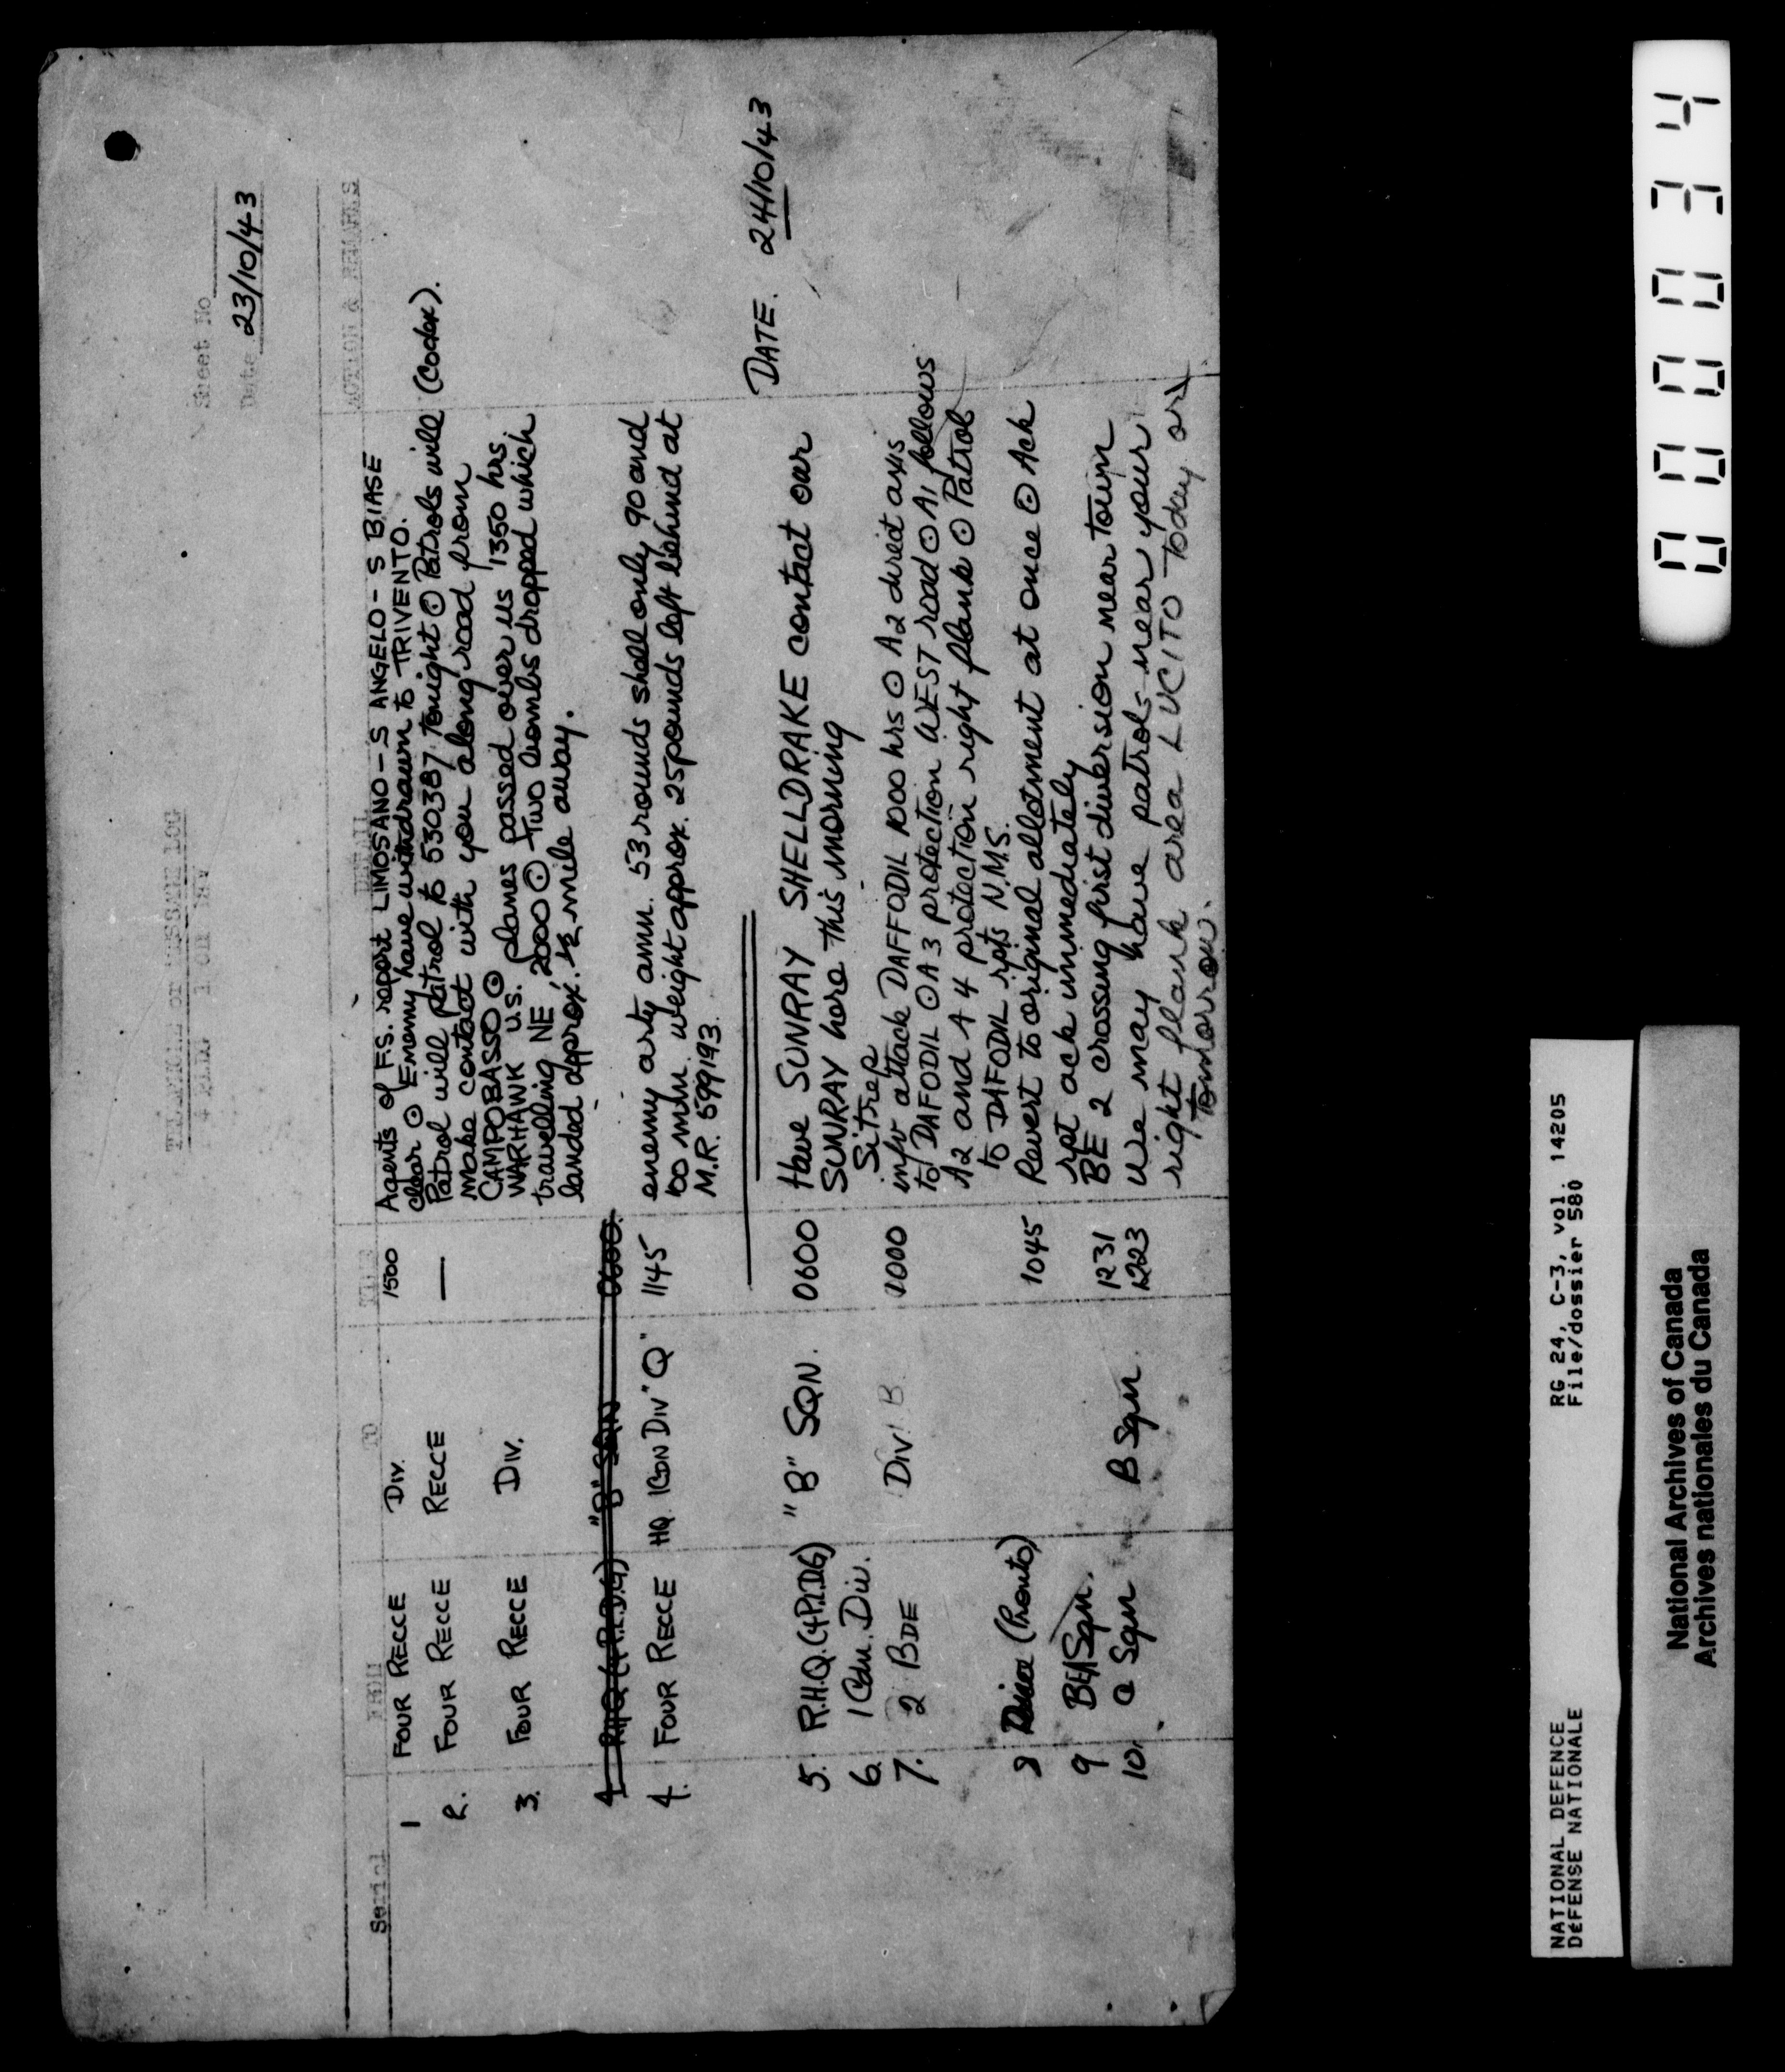 Sheet No
Date 23/10/43
TELEPHONE or MESSAGE LOG
4 RECCE
Serial FROM TO TIME DETAIL ACTION & REMARKS
1 FOUR RECCE DIV. 1500 Agents of F.S. report LIMOSANO - S ANGELO - S BIASE
clear ⊙ Enemy have withdrawn to TRIVENTO.
2. FOUR RECCE RECCE — Patrol will patrol to 530387 tonight ⊙ Patrols will (Codex).
make contact with you along road from
CAMPOBASSO ⊙
3. FOUR RECCE DIV. WARHAWK U.S. planes passed over us 1350 hrs
travelling NE, 2000 ⊙ Two bombs dropped which
landed approx. ½ mile away.
4 RHQ (4 P.L.D.G) "B" SQN 0600
4. FOUR RECCE HQ. 1 CDN DIV "Q" 1145 enemy arty amn. 53 rounds shell only 90 and
100 m/m. weight approx. 25 pounds left behind at
M.R. 599193.
DATE. 24/10/43
5. R.H.Q. (4 P.L.D.G) "B" SQN. 0600 Have SUNRAY SHELLDRAKE contact our
SUNRAY here this morning
6. 1 Cdn. Div. Sitrep
7. 2 BDE Div. B. 1000 info attack DAFFODIL 1000 hrs ⊙ A2 direct axis
to DAFODIL ⊙ A3 protection WEST road ⊙ A1 follows
A2 and A4 protection right flank ⊙ Patrol
to DAFODIL rpts N.M.S.
8 (Pronto) 1045 Revert to original allotment at once ⊙ Ack
rpt ack immediately
9 Sqn. 1231 BE 2 crossing first diversion near town
10. Sqn B Sqn. 1223 We may have patrols near your
right flank area LUCITO today or
tomorrow.
00034
NATIONAL DEFENCE RG 24, C-3, vol. 14205
DÉFENSE NATIONALE File/dossier 580
National Archives of Canada
Archives nationales du Canada